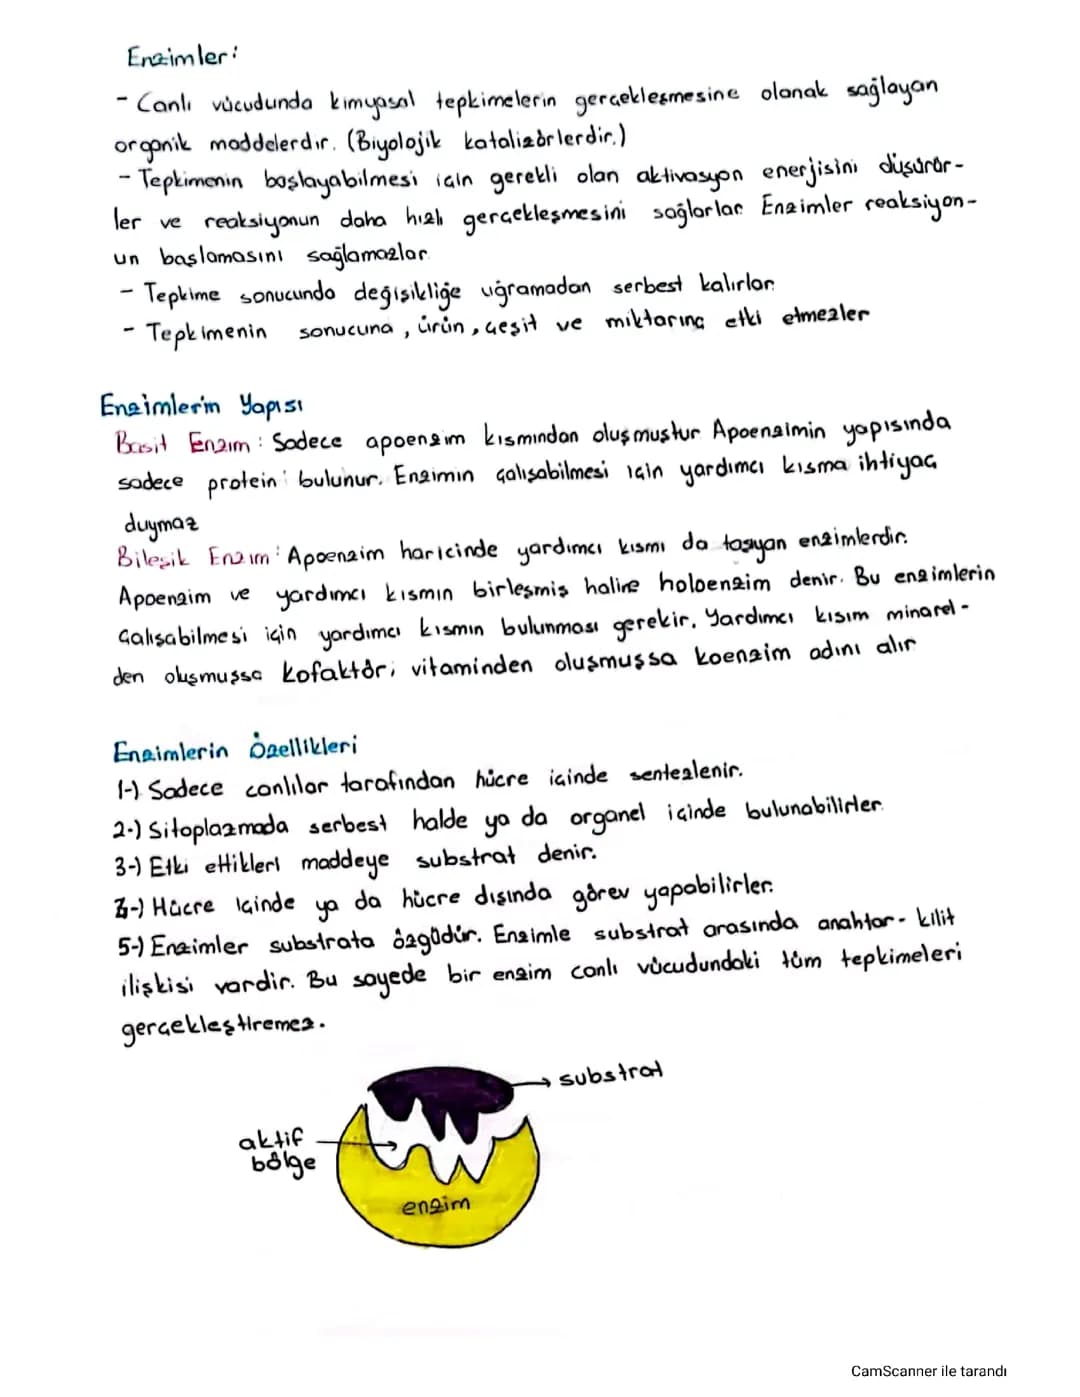 Enzimler:
- Canlı vücudunda kimyasal tepkimelerin gerçekleşmesine olanak sağlayan
organik maddelerdir. (Biyolojik katalizörlerdir.)
- Tepkimenin başlayabilmesi için gerekli olan aktivasyon enerjisini düşürür-
ler ve reaksiyonun daha hızlı gerçekleşmesini sağlarlar. Enzimler reaksiyon-
un başlamasını sağlamazlar
- Tepkime sonucunda değişikliğe uğramadan serbest kalırlar.
- Tepkimenin sonucuna, ürün, çeşit ve miktarına etki etmezler
Enzimlerin Yapısı
Basit Enzim: Sadece apoenzim kısmından oluşmuştur. Apoenzimin yapısında
sadece protein bulunur. Enzimin çalışabilmesi için yardımcı kısma ihtiyaç
duymaz
Bileşik Enzim: Apoenzim haricinde yardımcı kısmı da taşıyan enzimlerdir.
Apoenzim ve yardımcı kısmın birleşmiş haline holoenzim denir. Bu enzimlerin
çalışabilmesi için yardımcı kısmın bulunması gerekir. Yardımcı kısım minarel-
den oluşmuşsa kofaktör; vitaminden oluşmuşsa koenzim adını alır
Enzimlerin Özellikleri
1-) Sadece canlılar tarafından hücre içinde sentezlenir.
2-) Sitoplazmada serbest halde ya da organel içinde bulunabilirler.
3-) Etki ettikleri maddeye substrat denir.
4-) Hücre içinde ya da hücre dışında görev yapabilirler.
5-) Enzimler substrata özgüdür. Enzimle substrat arasında anahtar-kilit
ilişkisi vardir. Bu sayede bir enzim canlı vücudundaki tüm tepkimeleri
gerçekleştiremez.
substrat
aktif
bölge
enzim
CamScanner ile tarandı